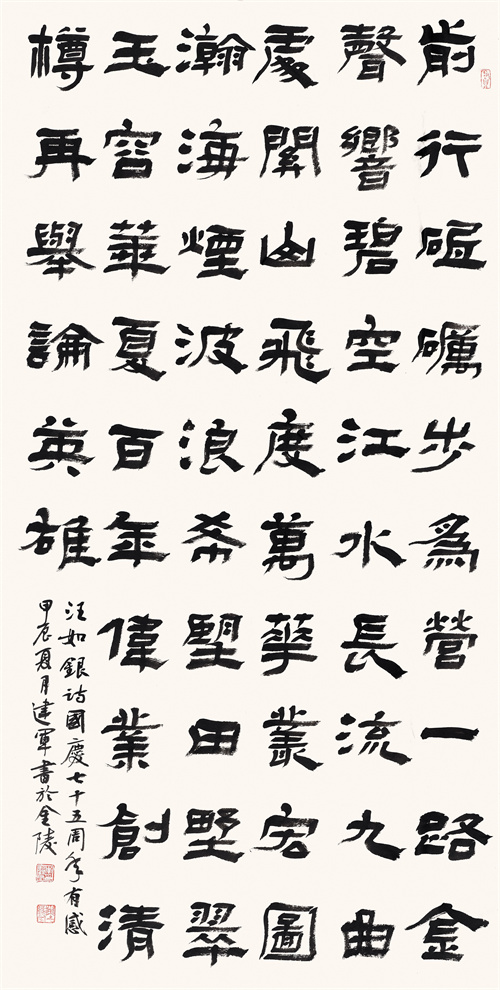 前行砥礪步爲營一路金
聲響碧空江水長流九曲
處關山飛度萬華叢宏圖
瀚海煙波浪希朢田野翠
玉容華夏百年偉業創清
樽再舉論英雄
汪如銀詩國慶七十五周年有感
甲辰夏月建軍書於金陵